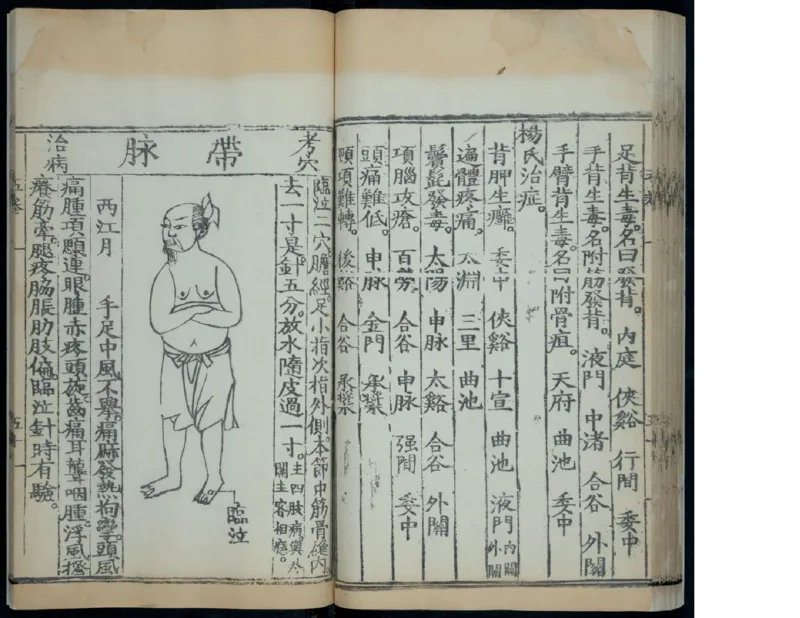 足背生毒。名曰發背。 內庭 俠谿 行間 委中
手背生毒。名附筋發背。 液門 中渚 合谷 外關
手臂背生毒。名曰附骨疽。 天府 曲池 委中
楊氏治症。
背胛生癰。 委中 俠谿 十宣 曲池 液門 內關 外關
遍體疼痛。 太淵 三里 曲池
鬢髭發毒。 太陽 申脉 太谿 合谷 外關
項腦攻瘡。 百勞 合谷 申脉 强間 委中
頭痛難低。 申脉 金門 承漿
頸項難轉。 後谿 合谷 承漿
考穴
臨泣二穴膽經。足小指次指外側。本節中筋骨縫內
去一寸是。針五分。放水隨皮過一寸。主四肢病。與外
關主客相應。
帶脉
臨泣
治病
西江月 手足中風不舉。痛麻發熱拘攣。頭風
痛腫項顋連。眼腫赤疼頭旋。齒痛耳聾咽腫。浮風搔
癢筋牽。腿疼脇脹肋肢偏。臨泣針時有驗。